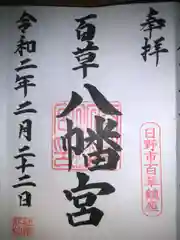 奉拝
日野市百草鎮座
百草
八幡宮
令和二年二月二十二日